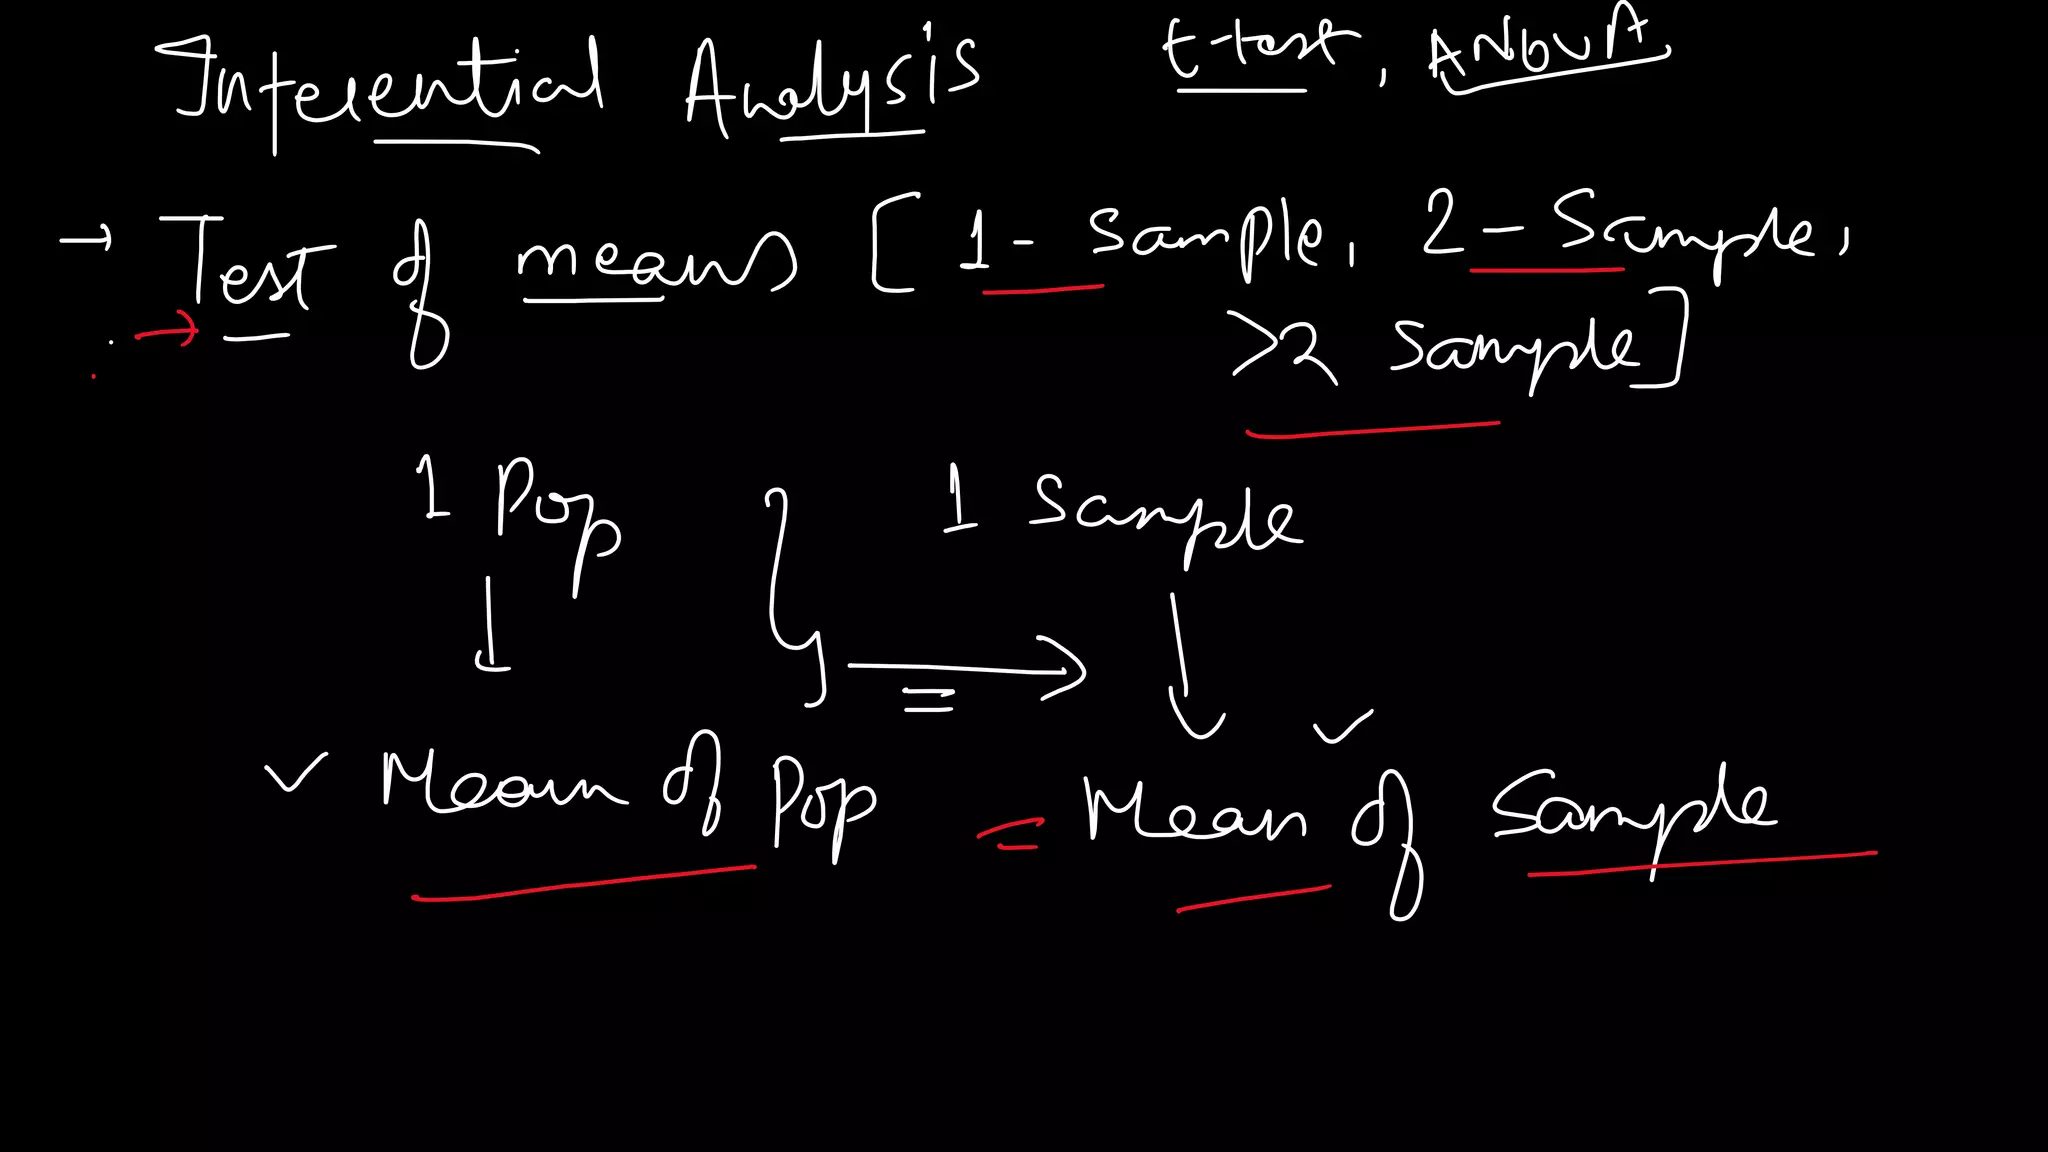 Inferential Analysis t-test, ANOVA
→ Test of means [1-Sample, 2-Sample,
>2 Sample]
1 Pop 1 Sample
✓ Mean of Pop = Mean of Sample ✓